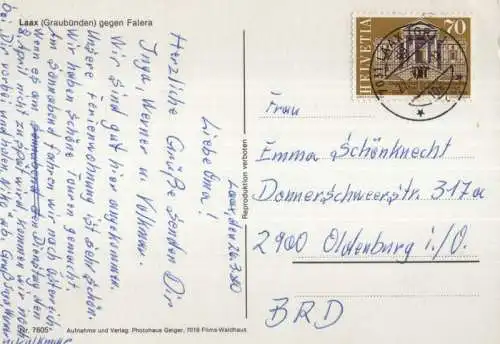 Laax (Graubünden) gegen Falera
Laax, den 26.3.80
Liebe Oma!
Herzliche Grüße senden Dir
Inga, Werner u. Volkmar.
Wir sind gut hier angekommen.
Unsere Ferienwohnung ist sehr schön.
Wir haben schöne Touren gemacht.
Am Sonnabend fahren wir nach Österreich.
Wenn es am Dienstag den
8. April nicht zu spät wird, kommen wir noch
bei Dir vorbei und holen Niki ab. Gruß
Volkmar
Nr. 7605
Aufnahme und Verlag: Photohaus Geiger, 7018 Flims-Waldhaus
Reproduktion verboten
HELVETIA
70
7031 LAAX
Frau
Emma Schönknecht
Donnerschweerstr. 317a
2900 Oldenburg i./O.
BRD